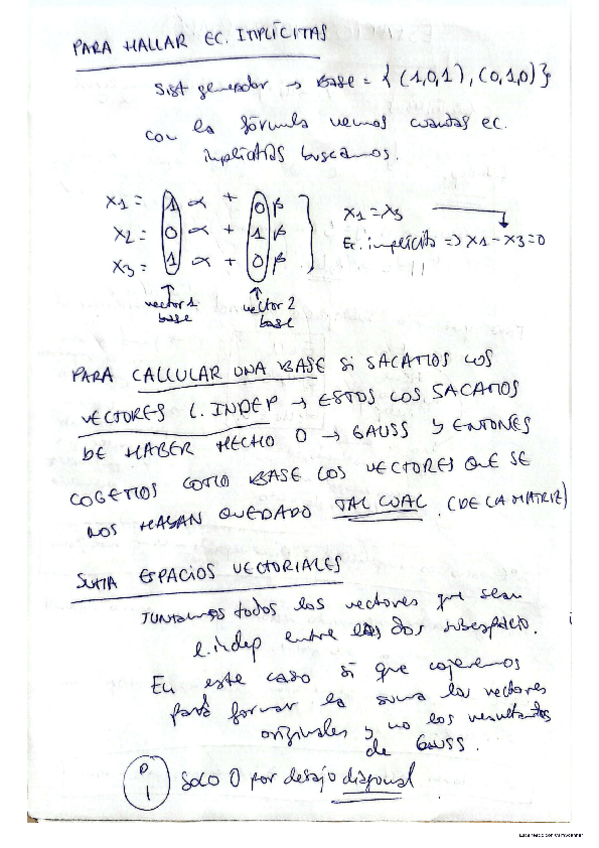 PARA HALLAR EC. IMPLÍCITAS
Sist generador → Base = {(1,0,1), (0,1,0)}
con la fórmula vemos cuantas ec.
implícitas buscamos.
X1 = 1 α + 0 β
X2 = 0 α + 1 β
X3 = 1 α + 0 β
X1 = X3
Ec. implícita => X1 - X3 = 0
vector 1
base
vector 2
base
PARA CALCULAR UNA BASE SI SACAMOS LOS
VECTORES L. INDEP → ESTOS LOS SACAMOS
DE HABER HECHO 0 → GAUSS Y ENTONES
COGEMOS COMO BASE LOS VECTORES QUE SE
NOS HAYAN QUEDADO TAL CUAL. (DE LA MATRIZ)
SUMA ESPACIOS VECTORIALES
JUNTAMOS todos los vectores que sean
l. indep entre los dos subespacio.
En este caso si que cojeremos
para formar la suma los vectores
originales y no los resultantes
de GAUSS.
Solo 0 por debajo diagonal